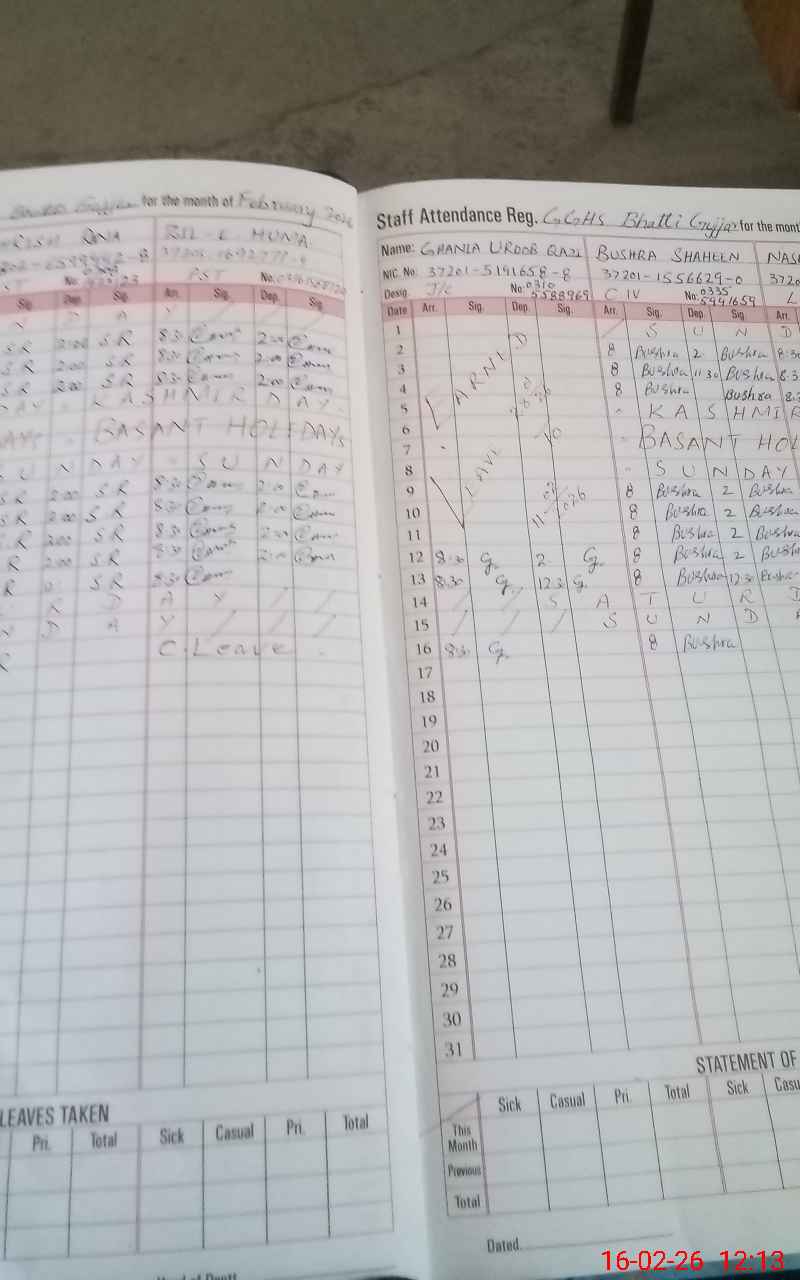 for the month of February 2026
HUMA
PST
Sig. Dep. Sig. Arr. Sig. Dep. Sig.
N D A Y
SR 2:00 SR 8:30 2:00
SR 2:00 SR 8:30 2:00
SR 2:00 SR 8:30 2:00
DAY - KASHMIR DAY.
DAYS - BASANT HOLIDAYS
SUNDAY - SUNDAY
SR 2:00 SR 8:30 2:00
SR 2:00 SR 8:30 2:00
SR 2:00 SR 8:30 2:00
R 2:00 SR 8:30 2:00
R SR 8:30
R D A Y
N D A Y
C. Leave
LEAVES TAKEN
Pri. Total Sick Casual Pri. Total
Staff Attendance Reg. GGHS Bhatti Gujjar for the month
Name: GHANIA UROOB QAZI BUSHRA SHAHEEN NAS
NIC. No. 37201-5191658-8 37201-1556629-0 3720
Desig. J/C No. 0310 5588969 C IV No. 0335 5991659 L
Date Arr. Sig. Dep. Sig. Arr. Sig. Dep. Sig. Arr.
EARNED
LEAVE
1 S U N D
2 8 Bushra 2 Bushra 8:30
3 8 Bushra 11 30 Bushra 8:3
4 8 Bushra Bushra 8:3
5 KASHMIR
6
7 BASANT HOL
8 SUNDAY
9 8 Bushra 2 Bushra
10 8 Bushra 2 Bushra
11 8 Bushra 2 Bushra
12 8:30 G. 2 G. 8 Bushra 2 Bushra
13 8:30 G. 12:30 G. 8 Bushra 12:30 Bushra
14 S A T U R D
15 S U N D A
16 8:30 G. 8 Bushra
17
18
19
20
21
22
23
24
25
26
27
28
29
30
31
STATEMENT OF
Sick Casual Pri. Total Sick Casu
This Month
Previous
Total
Dated.
16-02-26 12:13